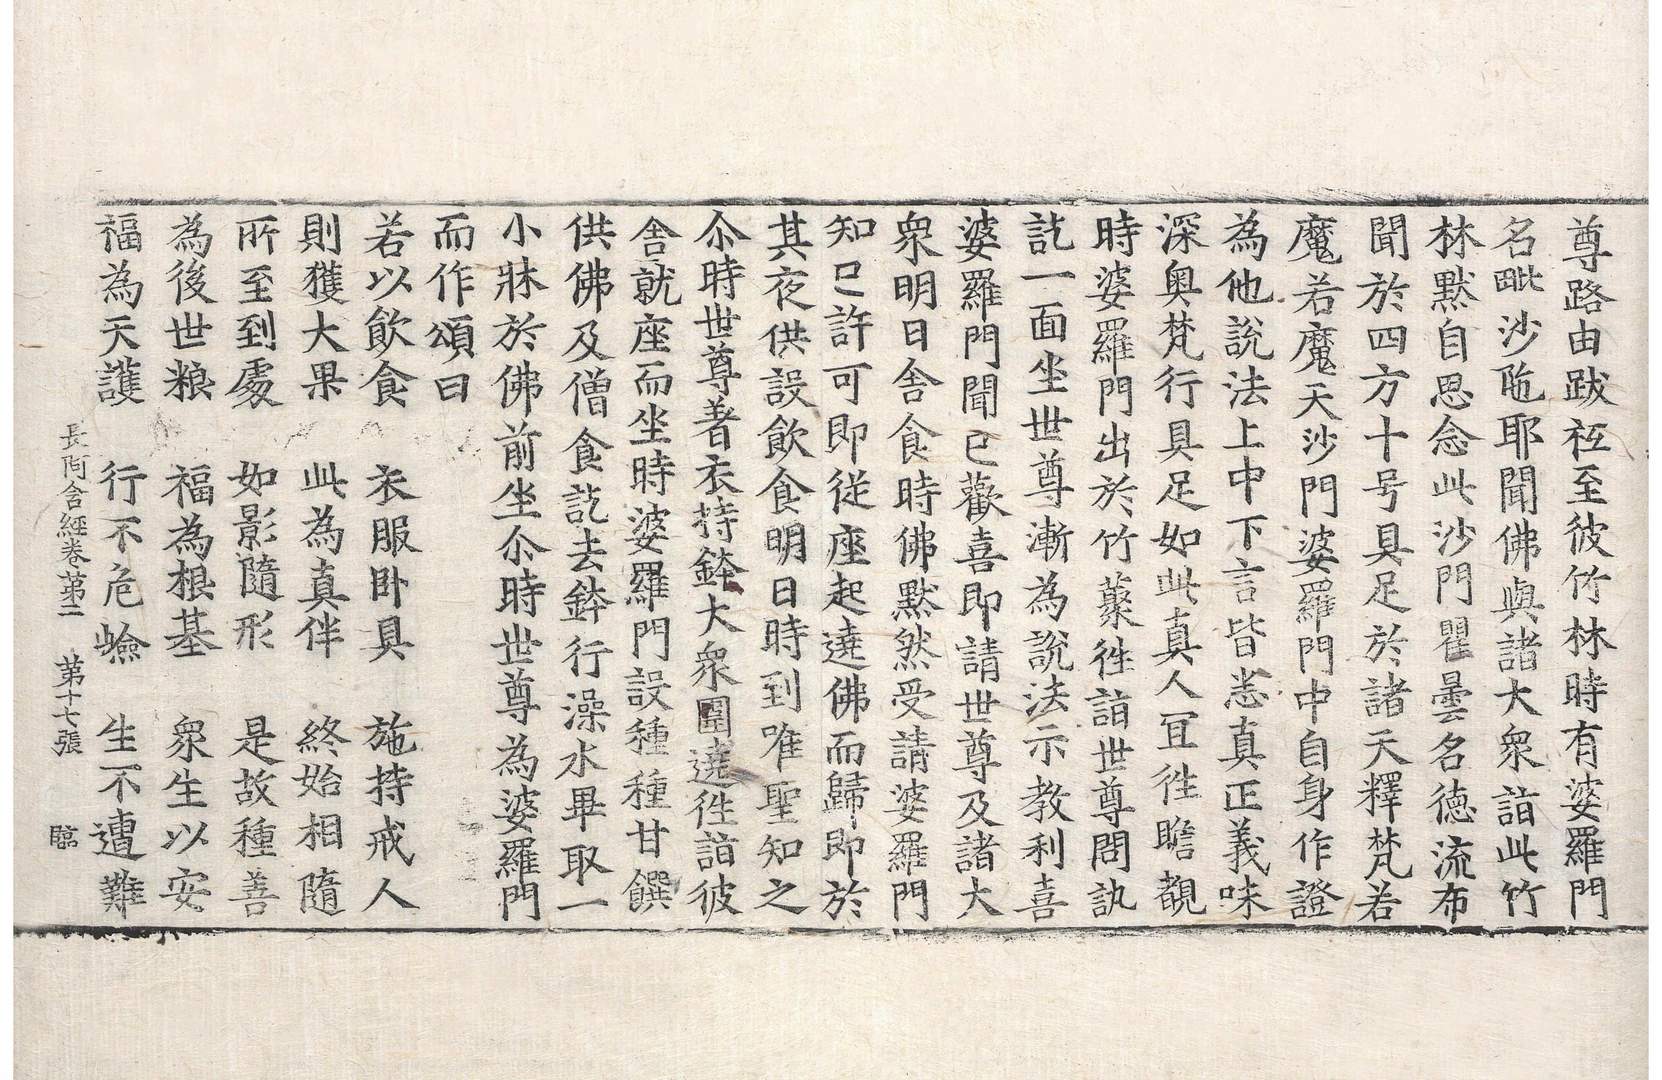 尊路由跋祇至彼竹林時有婆羅門
名毗沙陁耶聞佛與諸大衆詣此竹
林默自思念此沙門瞿曇名德流布
聞於四方十号具足於諸天釋梵若
魔若魔天沙門婆羅門中自身作證
為他說法上中下言皆悉真正義味
深奧梵行具足如此真人冝徃瞻覩
時婆羅門出於竹藂徃詣世尊問訊
訖一面坐世尊漸為說法示教利喜
婆羅門聞已歡喜即請世尊及諸大
衆明日舍食時佛默然受請婆羅門
知已許可即從座起遶佛而歸即於
其夜供設飲食明日時到唯聖知之
尒時世尊著衣持鉢大衆圍遶徃詣彼
舍就座而坐時婆羅門設種種甘饌
供佛及僧食訖去鉢行澡水畢取一
小牀於佛前坐尒時世尊為婆羅門
而作頌曰
若以飲食　衣服卧具　施持戒人
則獲大果　此為真伴　終始相隨
所至到處　如影隨形　是故種善
為後世粮　福為根基　衆生以安
福為天護　行不危嶮　生不遭難
長阿含經卷第二　第十七張　臨